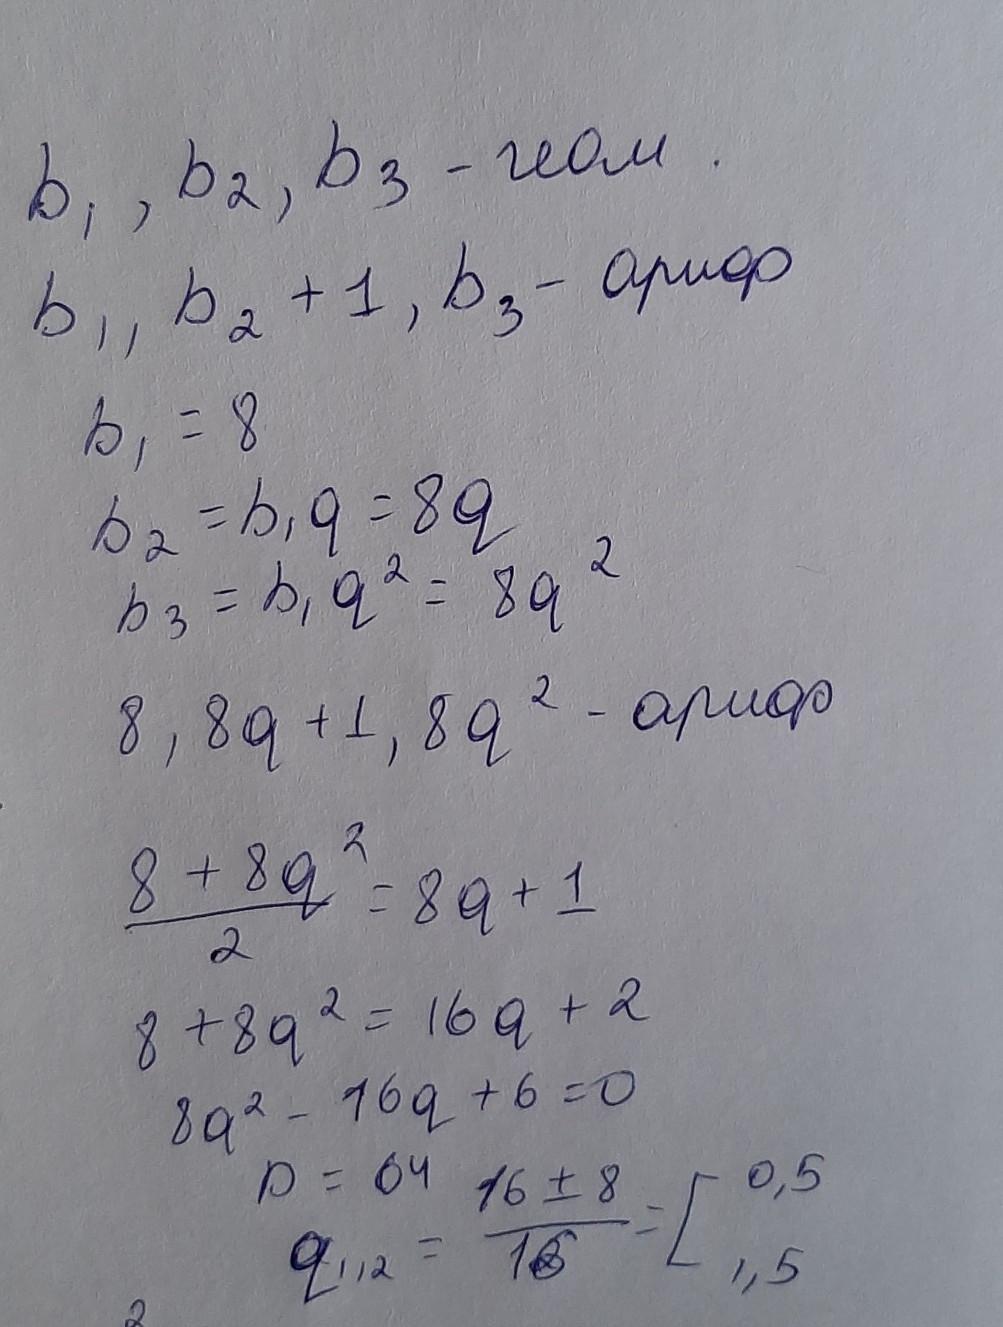 b₁, b₂, b₃ - геом.
b₁, b₂ + 1, b₃ - ариф
b₁ = 8
b₂ = b₁q = 8q
b₃ = b₁q² = 8q²
8, 8q + 1, 8q² - ариф
(8 + 8q²)/2 = 8q + 1
8 + 8q² = 16q + 2
8q² - 16q + 6 = 0
D = 64
q₁,₂ = (16 ± 8)/16 = [ 0,5
1,5
2